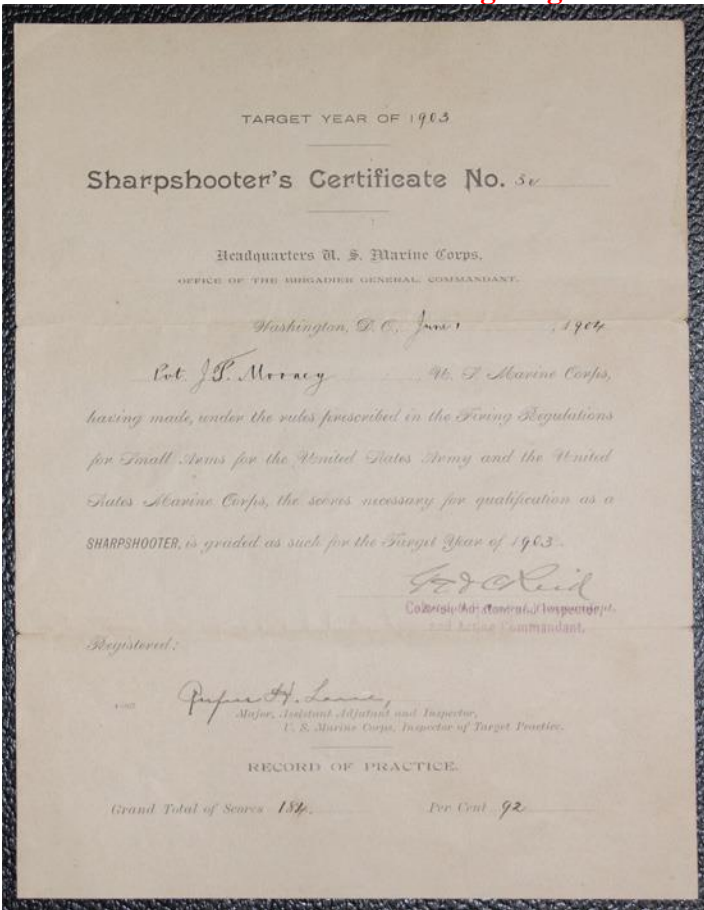 TARGET YEAR OF 1903
Sharpshooter's Certificate No.
Headquarters U. S. Marine Corps,
OFFICE OF THE BRIGADIER GENERAL, COMMANDANT.
Washington, D. C., June 1, 1904
Pvt. J. F. Mooney, U. S. Marine Corps,
having made, under the rules prescribed in the Firing Regulations
for Small Arms for the United States Army and the United
States Marine Corps, the scores necessary for qualification as a
SHARPSHOOTER, is graded as such for the Target Year of 1903.
Reid
Colonel, Adjutant and Inspector,
and Acting Commandant.
Registered:
Rufus H. Lane,
Major, Assistant Adjutant and Inspector,
U. S. Marine Corps, Inspector of Target Practice.
RECORD OF PRACTICE.
Grand Total of Scores 184. Per Cent 92